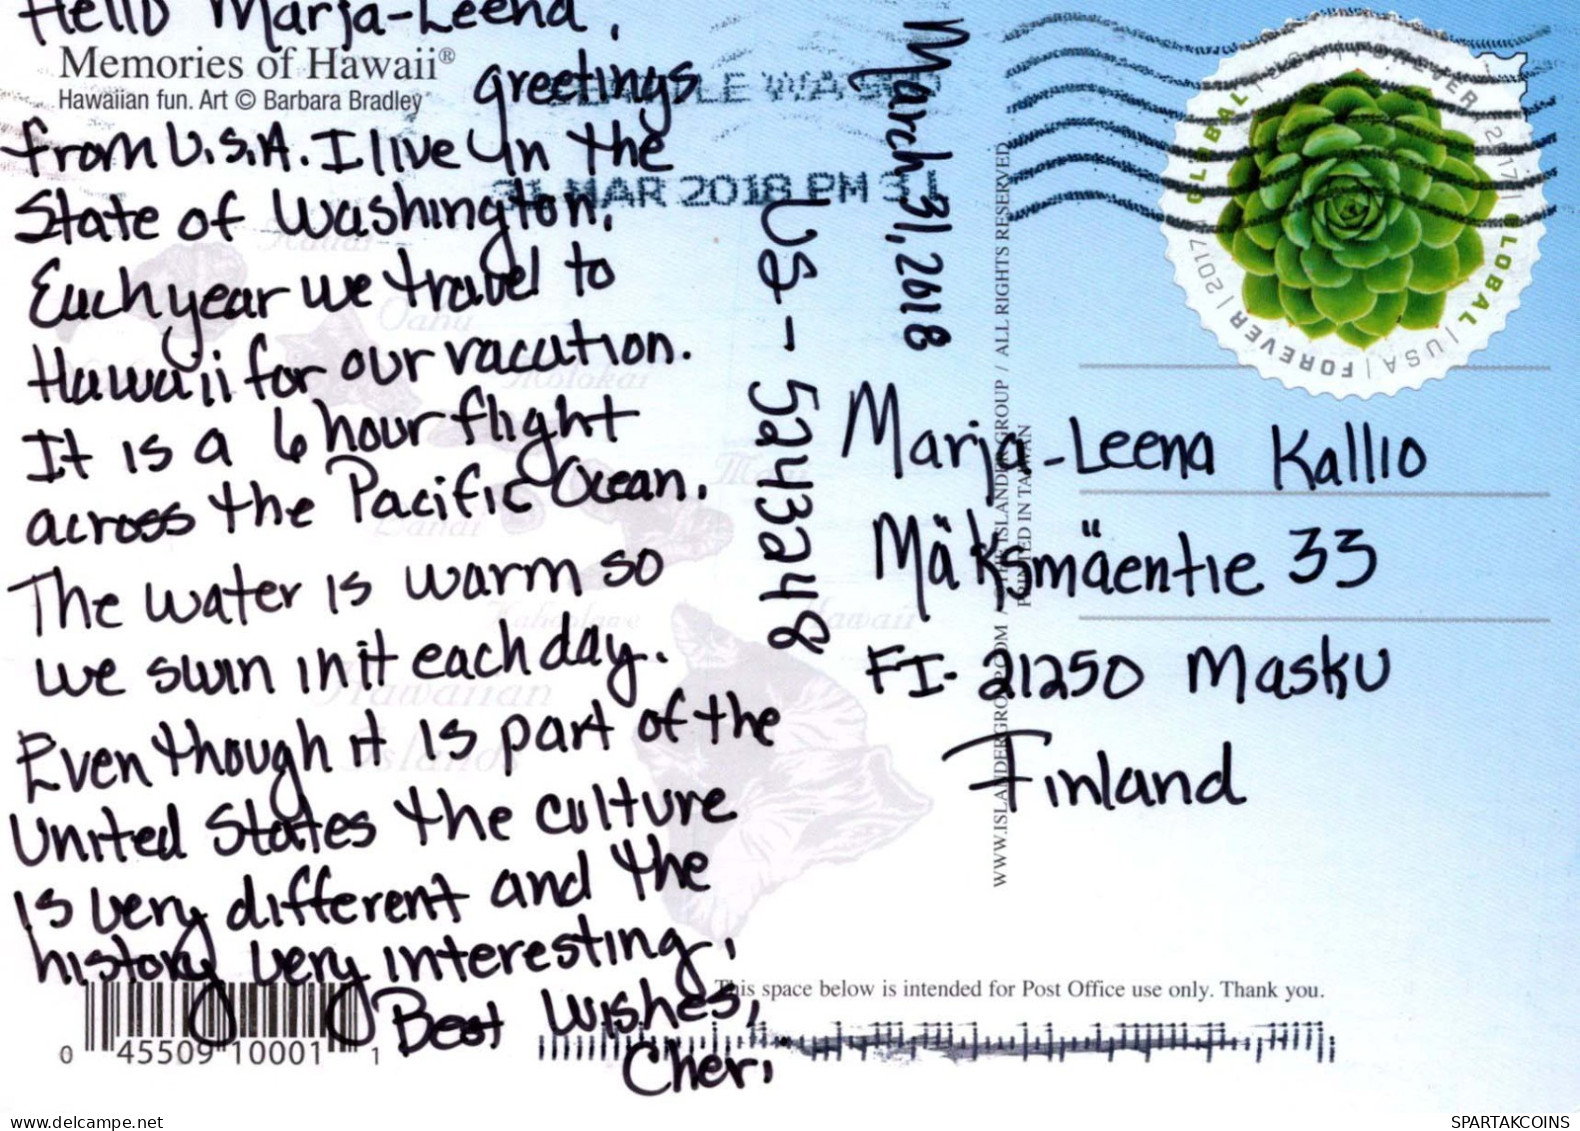 Hello Marja-Leena,
Memories of Hawaii®
Hawaiian fun. Art © Barbara Bradley
greetings
from U.S.A. I live in the
State of Washington.
Each year we travel to
Hawaii for our vacation.
It is a 6 hour flight
across the Pacific Ocean.
The water is warm so
we swim in it each day.
Even though it is part of the
United States the culture
is very different and the
history very interesting.
Best Wishes,
Cheri
0 45509 10001 1
31 MAR 2018 PM
Oahu
Molokai
Maui
Lanai
Kahoolawe
Hawaii
Hawaiian
Islands
US-5243248
March 31, 2018
WWW.ISLANDERGROUP.COM / THE ISLANDER GROUP / ALL RIGHTS RESERVED
PRINTED IN TAIWAN
GLOBAL | USA | FOREVER | 2017 | GLOBAL | USA | FOREVER | 2017
Marja-Leena Kallio
Mäksmäentie 33
FI-21250 Masku
Finland
This space below is intended for Post Office use only. Thank you.
www.delcampe.net
SPARTAKCOINS